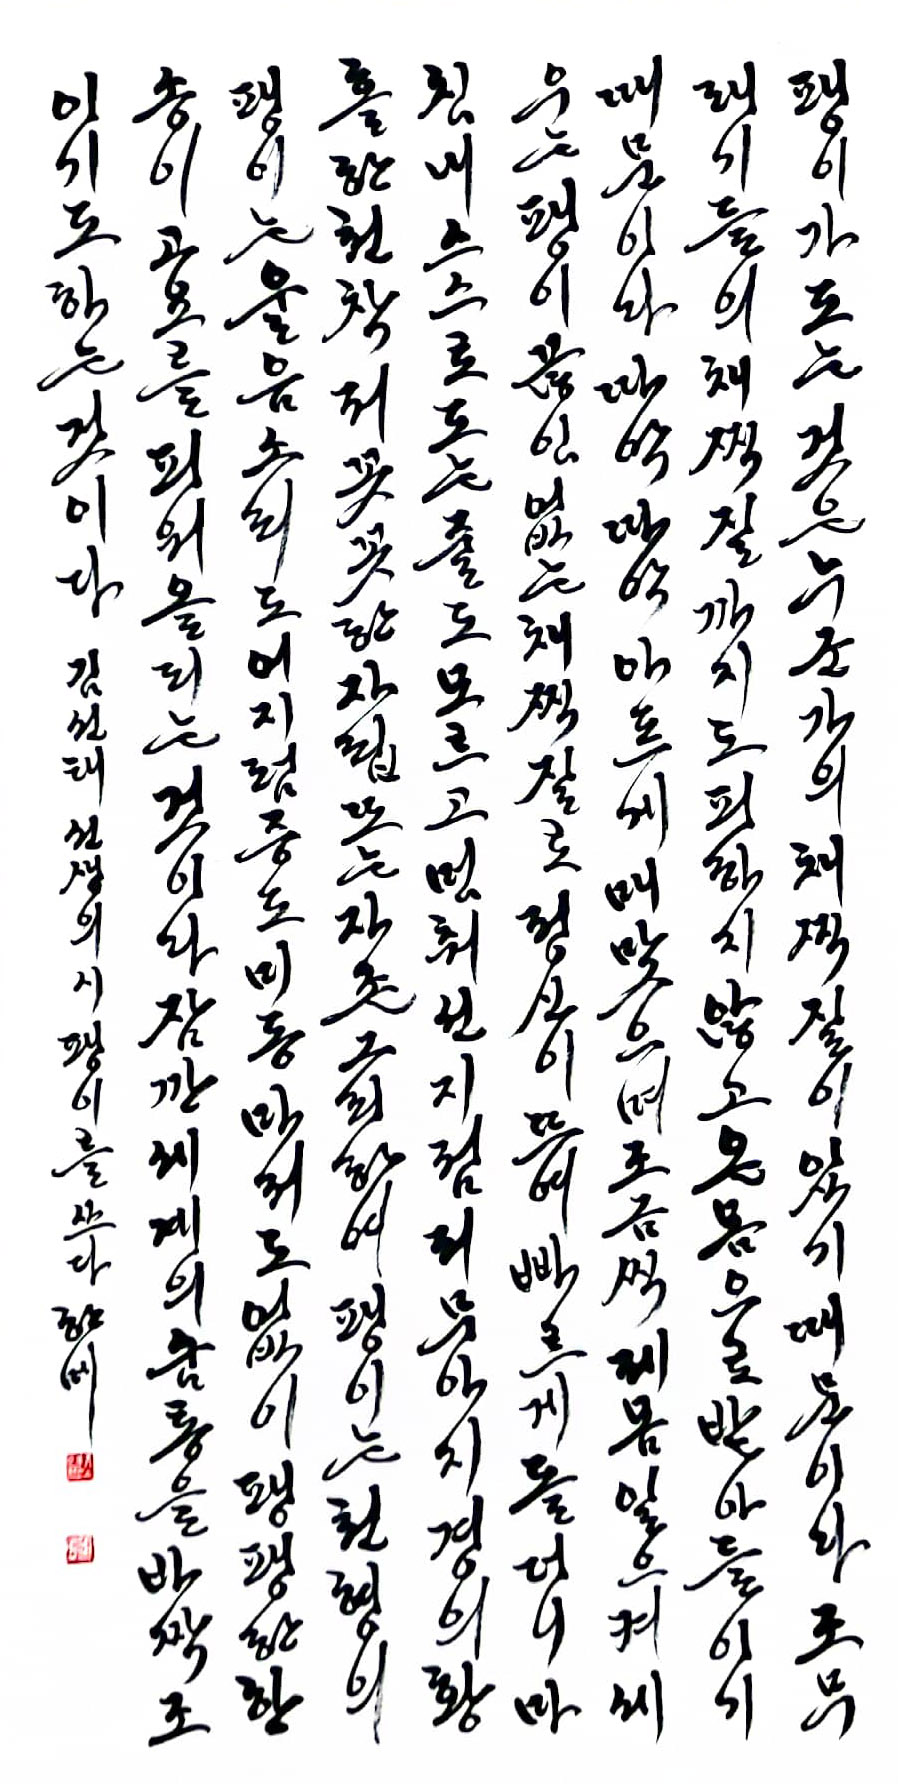 팽이가 도는 것은 누군가의 채찍질이 있기 때문이라 조무
래기들의 채찍질까지도 피하지 않고 온몸으로 받아들이기
때문이라 따악 따악 아프게 매 맞으며 조금씩 제 몸 일으켜 세
우는 팽이 끊임없는 채찍질로 정신이 뜨여 빠르게 돌더니 마
침내 스스로 도는 줄도 모르고 멈춰 선 지점 저 무아지경의 황
홀한 천착 저 꼿꼿한 자립 또는 자존 그리하여 팽이는 천형의
팽이는 울음소리도 어지럼증도 미동마저도 없이 팽팽한 한
송이 고요를 피워 올리는 것이라 잠깐 세계의 숨통을 바짝 조
이기도 하는 것이다 김선태 선생의 시 팽이를 쓰다 한메